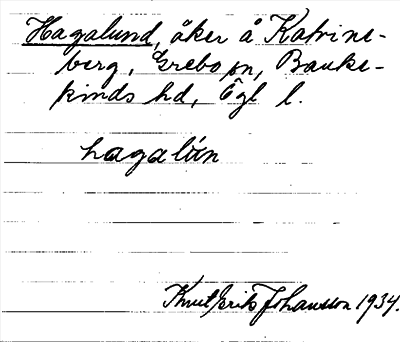 Hagalund, åker å Katrine-
berg, Grebo sn, Banke-
kinds hd, Ögl l.
hagalún
Knut Erik Johansson 1934.